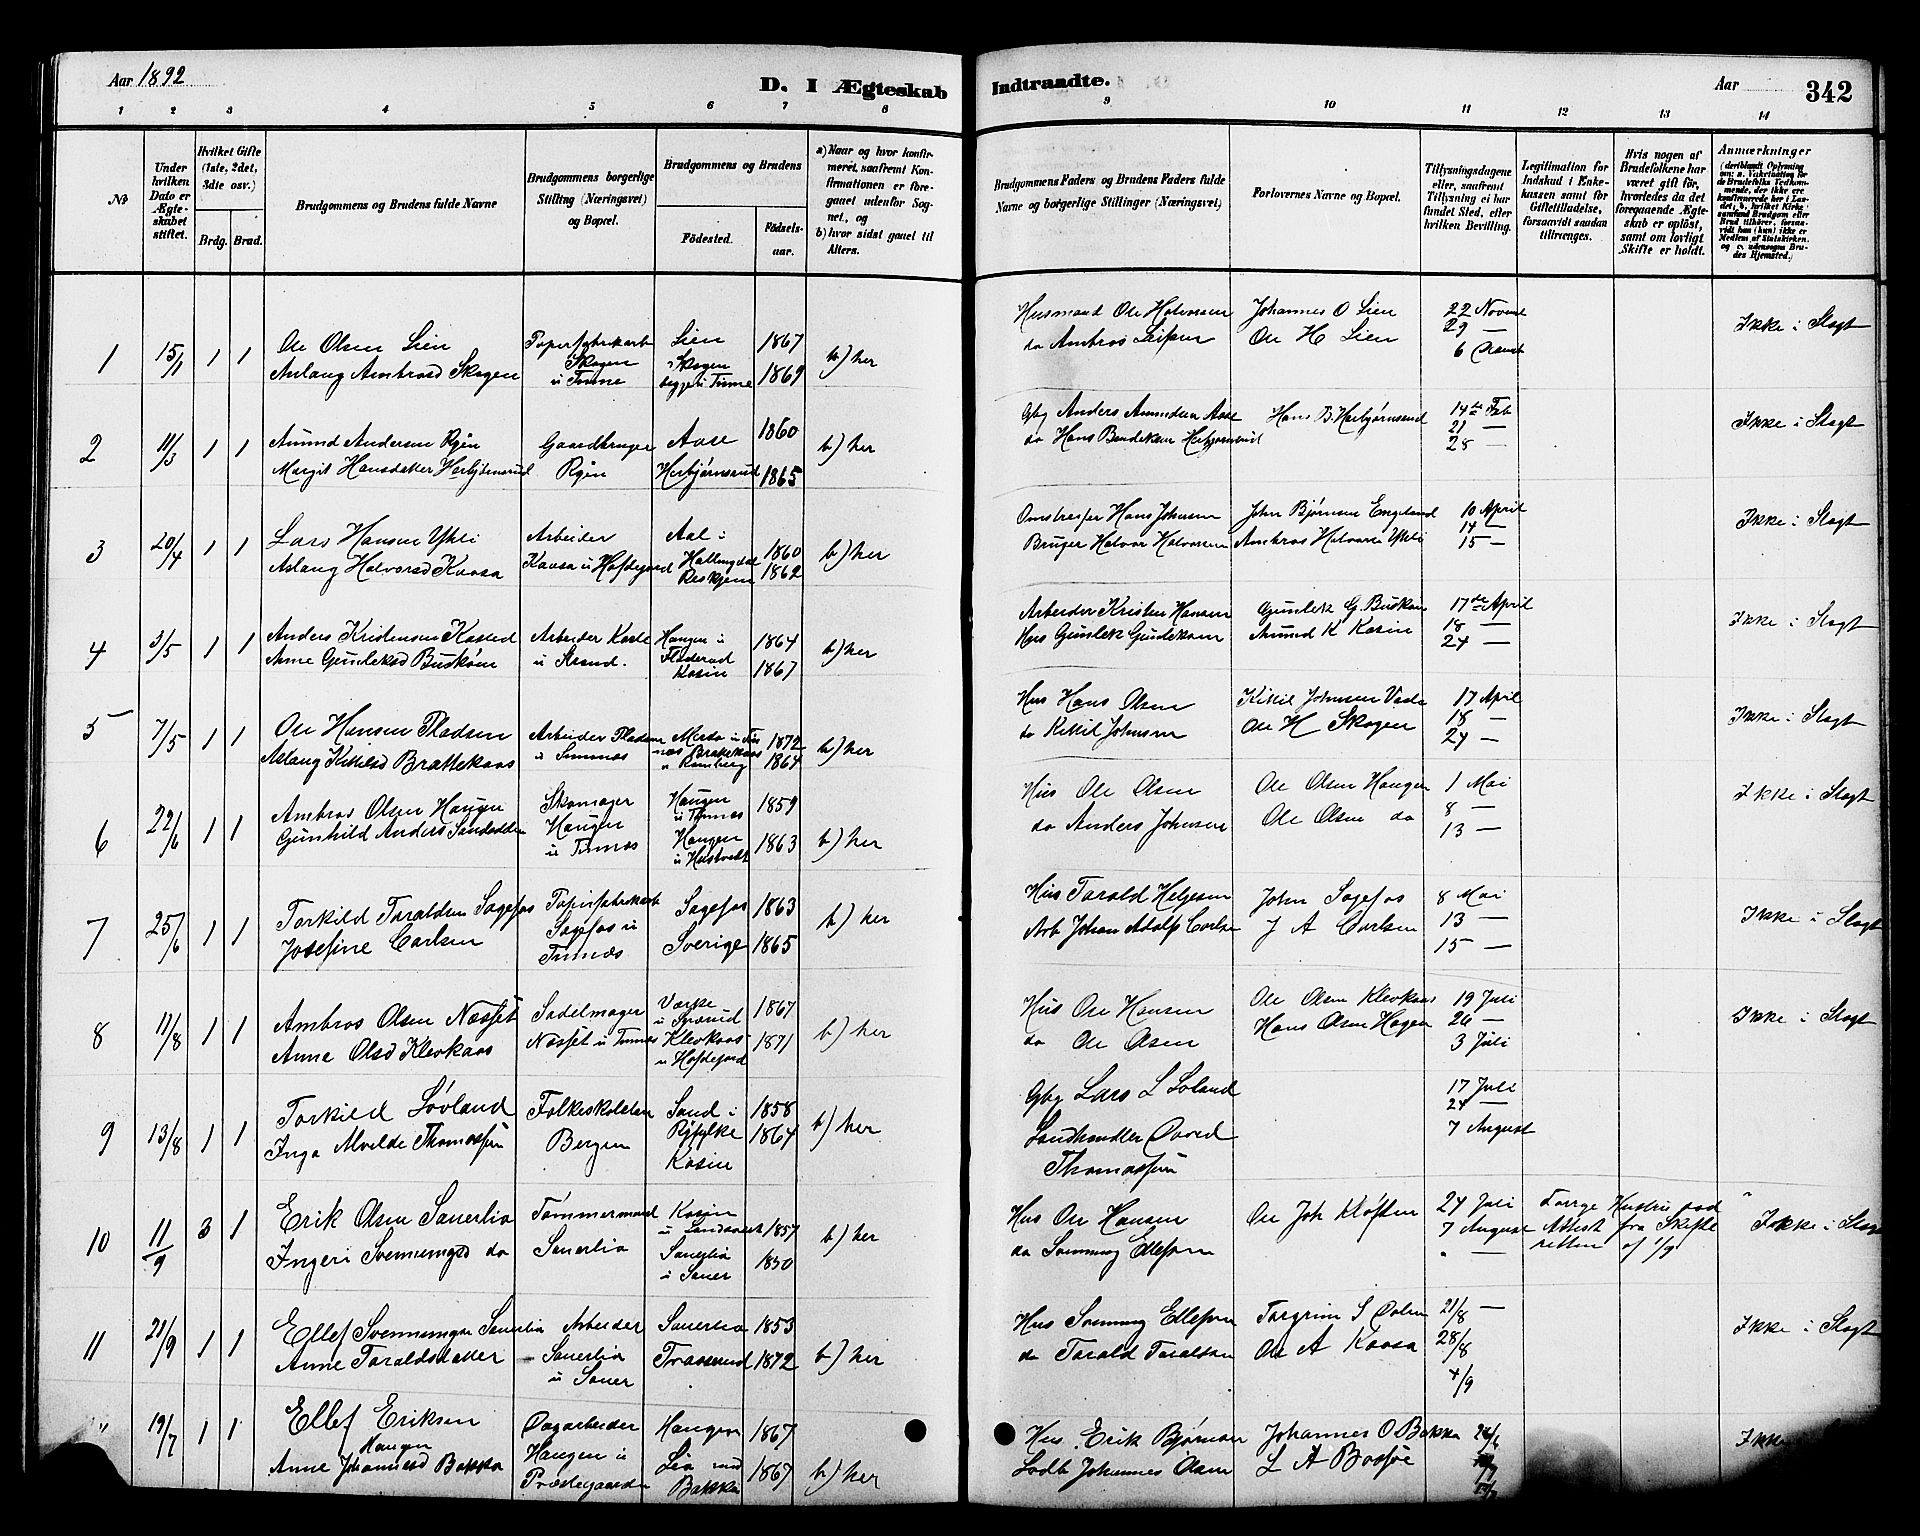 Aar 1892
D. I Ægteskab
Indtraadte.
Aar
342
1 2 3 4 5 6 7 8
9 10 11 12 13 14
№
Under hvilken Dato er Ægteskabet stiftet.
Hvilket Gifte (1ste, 2det, 3die osv.)
Brdg. Brud.
Brudgommens og Brudens fulde Navne
Brudgommens borgerlige Stilling (Næringsvei) og Bopæl.
Brudgommens og Brudens
Fødested.
Fødselsaar.
a) Naar og hvor konfirmeret, saafremt Konfirmationen er foregaaet udenfor Sognet, og
b) hvor sidst gaaet til Alters.
Brudgommens Faders og Brudens Faders fulde Navne og borgerlige Stillinger (Næringsvei)
Forlovernes Navne og Bopæl.
Tillysningsdagene eller, saafremt Tillysning ei har fundet Sted, efter hvilken Bevilling.
Legitimation for Indskud i Enkekassen samt for Giftetilladelse, forsaavidt saadan tiltrænges.
Hvis nogen af Brudefolkene har været gift før, hvorledes da det foregaaende Ægteskab er opløst, samt om lovligt Skifte er holdt.
Anmærkninger
1 15/1 1 1 Ole Olsen Lien Papirfabrikarb Lien 1867
Aslaug Ambrosd Skogen Skogen u Tinne Skogen begge u Tinne 1869 b) her
Husmand Ole Halvorsen Johannes O Lien 22 Novemb
do Ambros Leifsen Ole H Lien 29 —
6 Ikke i Slægt
2 11/3 1 1 Amund Andersen Rÿen Gaardbruger Aase 1860 b) her
Margit Hansdatter Herbjørnsrud Rÿen Herbjørnsrud 1865
Gbg Anders Amundsen Aase Hans B. Herbjørnsrud 14de Feb
do Hans Bendeksen Herbjørnsrud 21 —
28 — Ikke i Slægt
3 20/4 1 1 Lars Hansen Ykli Arbeider Aal i 1860
Aslaug Halvorsd Kaasa Kaasa u Hofdegaard Hallingdal Reskjem 1862 b) her
Hans Johnsen John Bjørnsen Engeland 10 April
Bruger Halvor Halvorsen Ambros Halvorsen Ykli 14 —
15 — Ikke i Slægt
4 3/5 1 1 Anders Kristensen Kasted Arbeider Kaste Haugen u 1864
Anne Gunleksd Buskøen u Strand. Fladerud Kasin 1867 b) her
Arbeider Kristen Hansen Gunlek G. Buskøen 17de April
Hus Gunlek Gunleksen Amund K Kasin 18 —
24 — Ikke i Slægt
5 7/5 1 1 Ole Hansen Pladsen Arbeider Pladsen 1872
Aslaug Kittilsd Brattekaas u Tinnæs Brattekaas 1864 b) her
Hus Hans Olsen Kittil Johnsen Vada 17 April
do Kittil Johnsen Ole H Skogen 18 —
24 — Ikke i Slægt
6 22/6 1 1 Ambros Olsen Haugen Skomager Haugen u Tinnæs 1859
Gunhild Anders Sandodden Haugen u Tinnæs Haugen u Hustvedt 1863 b) her
Hus Ole Olsen Ole Olsen Haugen 1 Mai
do Anders Johnsen Ole Olsen do 8 —
13 — Ikke i Slægt
7 25/6 1 1 Torkild Taraldsen Sagefos Papirfabrikarb Sagefos 1863
Josefine Carlsen Sagefos u Tinnæs Sverige 1865 b) her
Hus Tarald Helgesen John Sagefos 8 Mai
Arb Johan Adolf Carlsen J A Carlsen 13 —
15 — Ikke i Slægt
8 11/8 1 1 Ambros Olsen Næsset Sadelmager Værke 1867
Anne Olsd Klevkaas Næsset u Tinnæs Klevkaas u Hofdejord 1871 b) her
Hus Ole Hansen Ole Olsen Klevkaas 19 Juli
do Ole Olsen Hans Olsen Hagen 26 —
3 Juli Ikke i Slægt
9 13/8 1 1 Torkild Løvland Folkeskolelær Sand i Ryfylke 1858
Inga Alvilde Thomassen Bergen Kasin 1864 b) her
Gbg Lars L Løland 17 Juli
24 —
Landhandler David Thomassen 7 August
10 11/9 3 1 Erik Olsen Sauerlia Tømmermand Kasin 1857
Ingeri Svennungsd do Sauerlia Sauerlia u Sauer 1850 b) her
Hus Ole Hansen Ole Joh Kløften 24 Juli
do Svennung Ellefsen 7 August
" — Forrige Hustru død
Attest fra Skifteretten af 1/9 Ikke i Slægt
11 21/9 1 1 Ellef Svennungsen Sauerlia Arbeider Sauerlia 1853
Anne Taraldsdatter Sauerlia u Sauer 1872 b) her
Hus Svennung Ellefsen Torgrim S 21/8 —
do Tarald Taraldsen Ole A Kaasa 28/8
4/9 Ikke i Slægt
" 19/7 1 1 Ellef Eriksen Haugen Dagarbeider Haugen 1867
Anne Johannesd Bakka Haugen u Præstegaarden Lia Bakka 1867 b) her
Hus Erik Bjørnsen Johannes O Bakka 26/6
Johannes Olsen L A Bossøe
Ikke